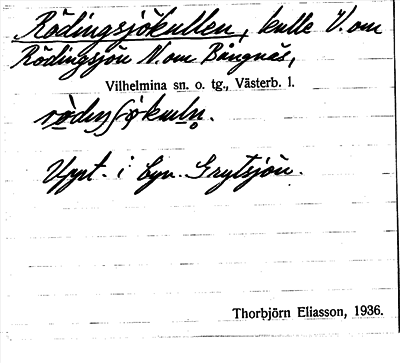 Rödingsjökullen, kulle V. om
Rödingsjön N. om Bångnäs,
Vilhelmina sn. o. tg., Västerb. l.
Uppt. i byn Grytsjön.
Thorbjörn Eliasson, 1936.